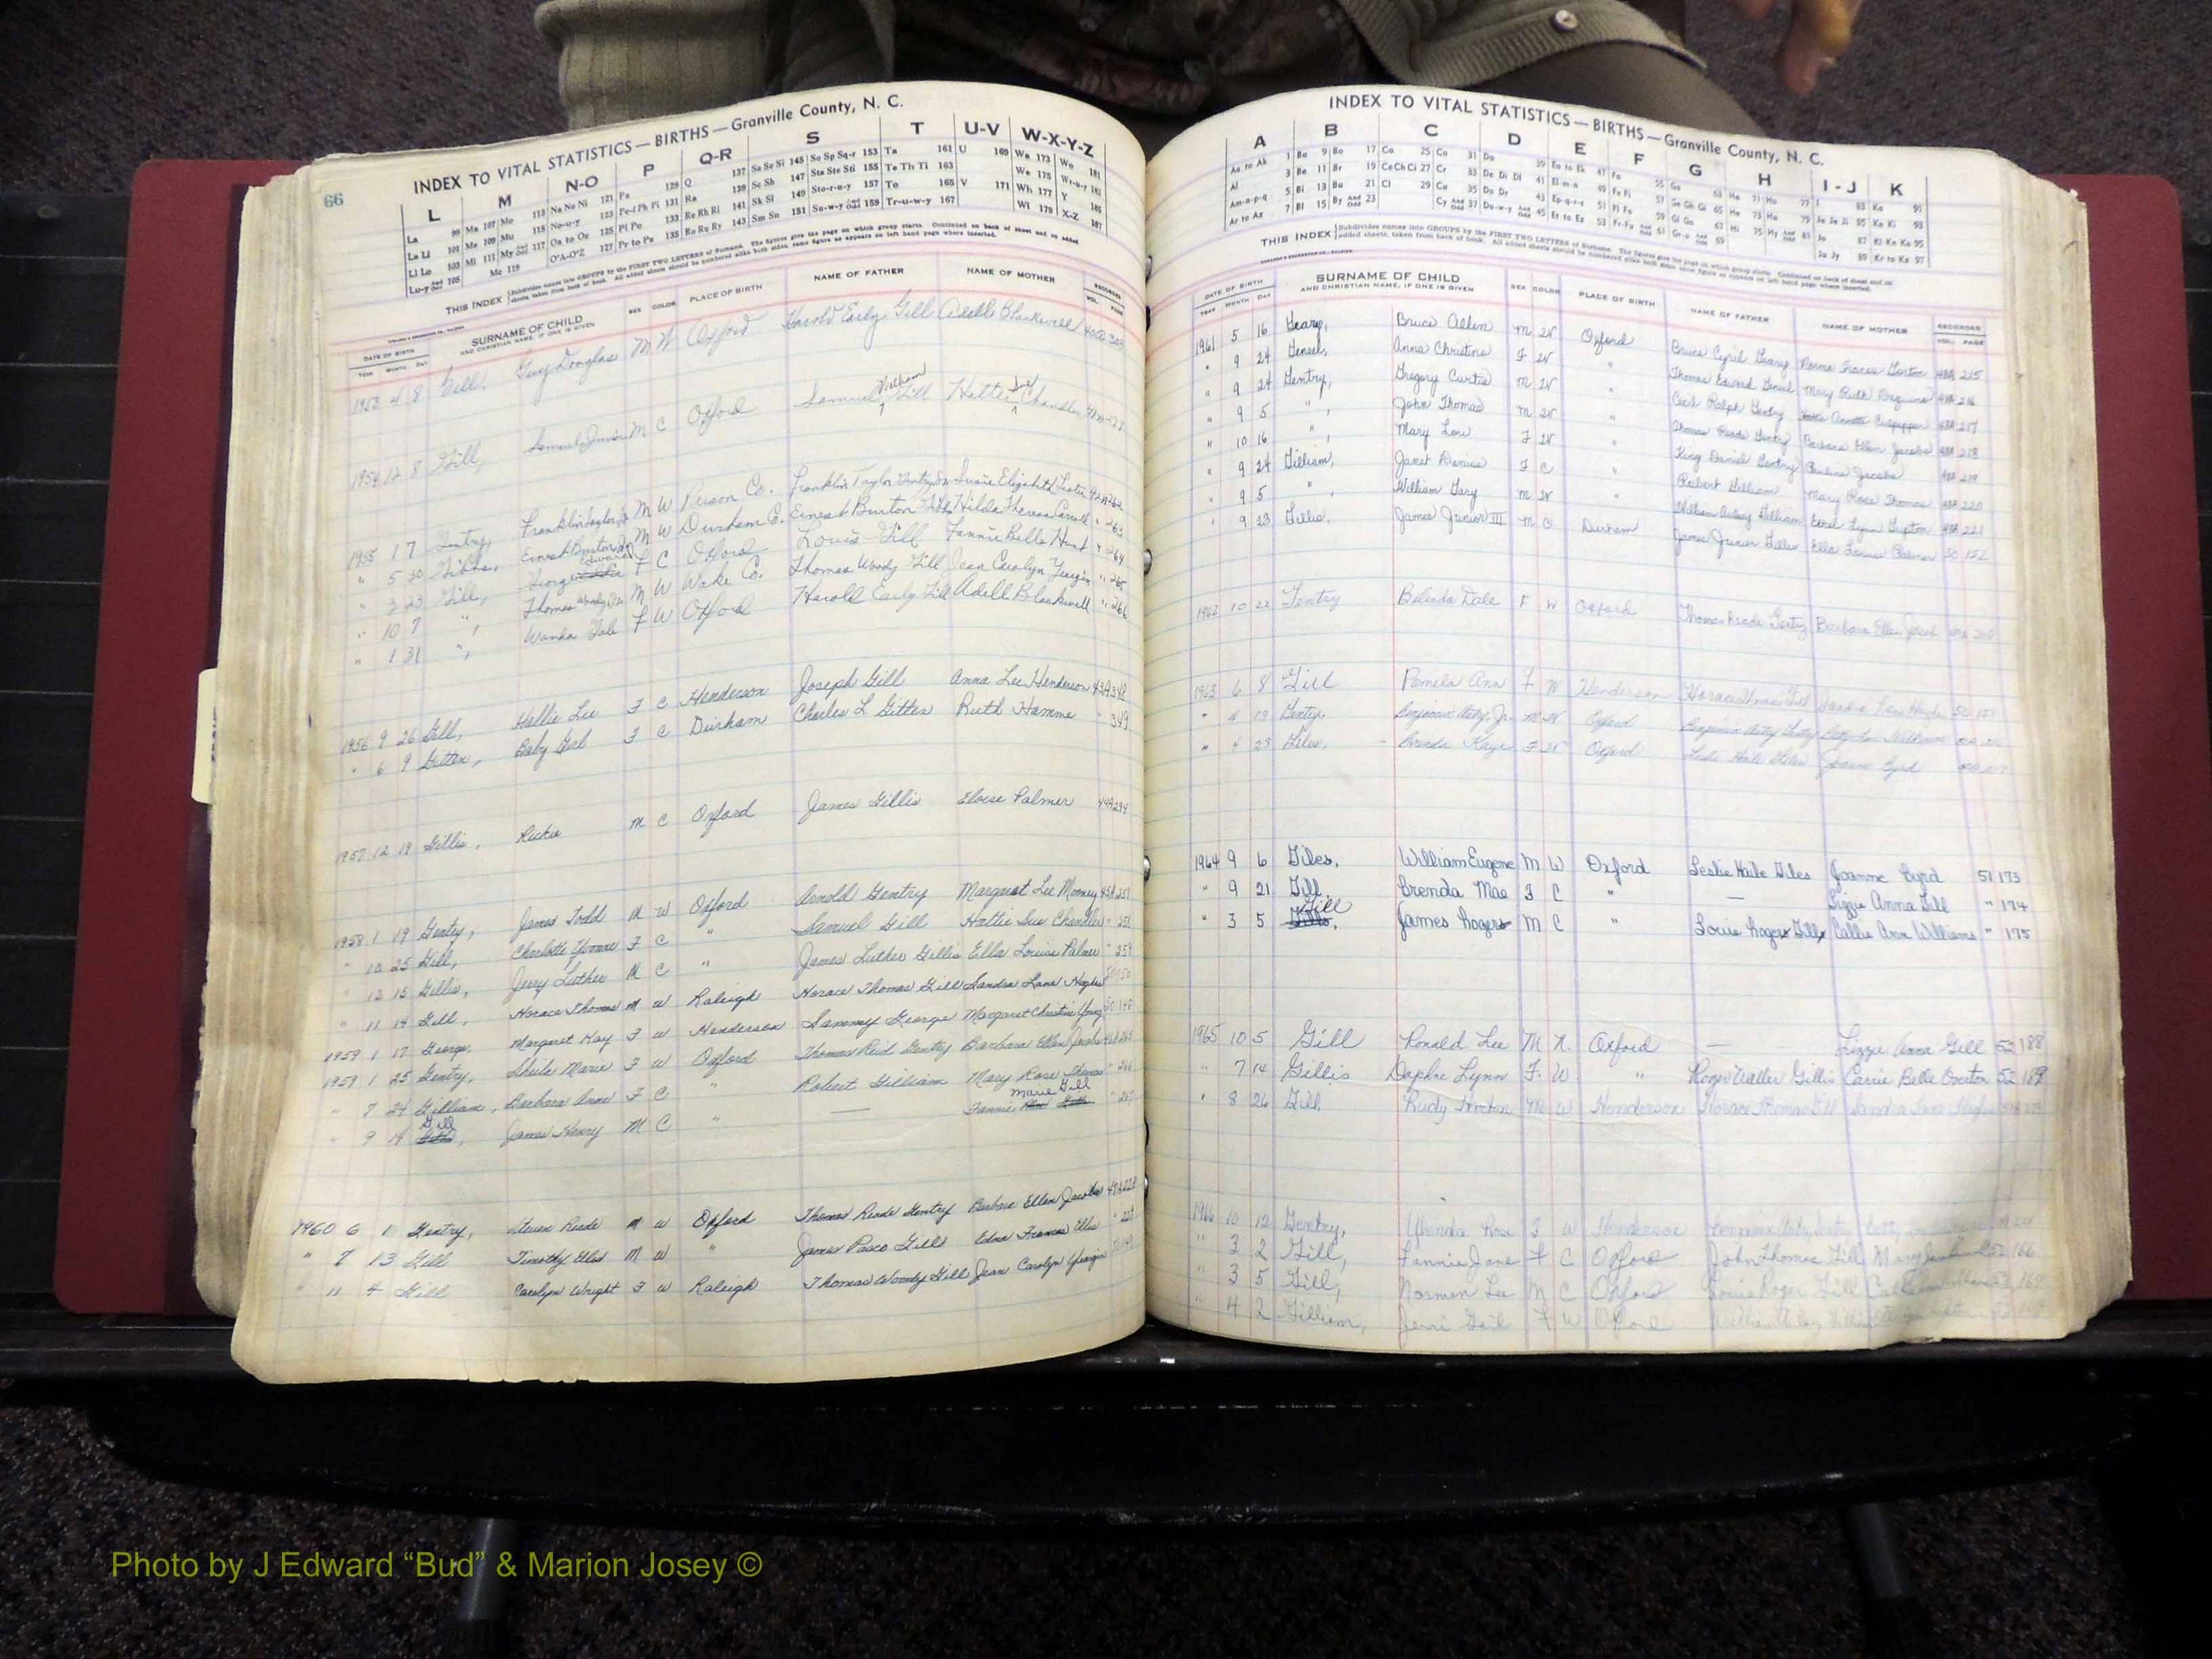 66
INDEX TO VITAL STATISTICS — BIRTHS — Granville County, N. C.
L M N-O P Q-R S T U-V W-X-Y-Z
La 99 Ma 107 Mo 113 Na Ne Ni 121 Pa 129 Q 137 Sa Sc Si 145 So Sp Sq-r 153 Ta 161 U 169 Wa 173 Wo 181
Le Li 101 Me 109 Mu 115 No-u-y 123 Pe-i Ph Pi 131 Ra 139 Se Sh 147 Sta Ste Sti 155 Te Th Ti 163 We 175 Wr-u-y 183
Li Lo 103 Mi 111 My And 117 Oa to Ou 125 Pl Po 133 Re Rh Ri 141 Sk Sl 149 Sto-r-u-y 157 To 165 V 171 Wh 177 Y 185
Lu-y And 105 Mc 119 O'A-O'Z 127 Pr to Pu 135 Ro Ru Ry 143 Sm Sn 151 Su-w-y And 159 Tr-u-w-y 167 Wi 179 X-Z 187
THIS INDEX Subdivides names into GROUPS by the FIRST TWO LETTERS of Surname. The figures give the page on which group starts. Continued on back of sheet and on added
sheets, taken from back of book. All added sheets should be numbered alike both sides, same figure as appears on left hand page where inserted.
DATE OF BIRTH SURNAME OF CHILD SEX COLOR PLACE OF BIRTH NAME OF FATHER NAME OF MOTHER RECORDED
YEAR MONTH DAY AND CHRISTIAN NAME, IF ONE IS GIVEN VOL. PAGE
1953 4 8 Gill, Guy Douglas M W Oxford Harold Early Gill Adelle Blackwell
William Sue
1954 12 8 Gill, Samuel Junior M C Oxford Samuel Gill Hattie Chandler
1955 1 7 Gentry, Franklin Taylor Jr M W Person Co. Franklin Taylor Gentry Sr Susie Elizabeth
" 5 30 Gibbs, Ernest Burton Jr M W Durham C. Ernest Burton Gibbs Hilda Theresa Carroll " 263
Edward
" 3 23 Gill, George F C Oxford Louis Gill Fannie Bell Hunt " 264
" 10 7 ", Thomas Woody Jr. M W Wake Co. Thomas Woody Gill Jean Carolyn Yeargin " 265
" 1 31 ", Wanda Gale F W Oxford Harold Early Gill Adell Blackwell " 266
1956 9 26 Gill, Hallie Lee F C Henderson Joseph Gill Anna Lee Henderson 43A348
" 6 9 Gitten, Baby Girl F C Durham Charles L. Gitten Ruth Hamme " 349
1957 12 19 Gillis, Rickie M C Oxford James Gillis Eloise Palmer 44A294
1958 1 19 Gentry, James Todd M W Oxford Arnold Gentry Margaret Lee Mooney 45A257
" 10 25 Gill, Charlotte Yvonne F C " Samuel Gill Hattie Sue Chandler " 258
" 12 15 Gillis, Jerry Luther M C " James Luther Gillis Ella Louise Palmer " 259
" 11 14 Gill, Horace Thomas M W Raleigh Horace Thomas Gill Sandra Lane Hughes 50 150
1959 1 17 George, Margaret Kay F W Henderson Sammy George Margaret Christine Young 50 148
1959 1 25 Gentry, Sheila Marie F W Oxford Thomas Reid Gentry Barbara Ellen Jacobs
" 7 24 Gilliam, Barbara Anne F C " Robert Gilliam Mary Rose Thomas " 266
Gill Marie Gill
" 9 14 James Henry M C " — Fannie " 267
1960 6 1 Gentry, Steven Reade M W Oxford Thomas Reade Gentry Barbara Ellen Jacobs
" 7 13 Gill Timothy Ellis M W " James Pasco Gill Edna Frances Ellis
" 11 4 Gill Carolyn Wright F W Raleigh Thomas Woody Gill Jean Carolyn Yeargin
INDEX TO VITAL STATISTICS — BIRTHS — Granville County, N. C.
A B C D E F G H I-J K
Aa to Ak 1 Ba 9 Bo 17 Ca 25 Co 31 Da 39 Ea to Ek 47 Fa 55 Ga 63 Ha 71 Ho 77 I 83 Ka 91
Al 3 Be 11 Br 19 Ce Ch Ci 27 Cr 33 De Di Dl 41 El-m-n 49 Fe Fi 57 Ge Gh Gi 65 He 73 Hu 79 Ja Je Ji 85 Ke Ki 93
Am-n-p-q 5 Bi 13 Bu 21 Cl 29 Cu 35 Do Dr 43 Ep-q-r-s 51 Fl Fo 59 Gl Go 67 Hi 75 Hy And 81 Jo 87 Kl Kn Ko 95
Ar to Az 7 Bl 15 By And 23 Cy And 37 Du-w-y And 45 Et to Ez 53 Fr-Fu And 61 Gr-u And 69 Ju Jy 89 Kr to Kz 97
THIS INDEX Subdivides names into GROUPS by the FIRST TWO LETTERS of Surname. The figures give the page on which group starts. Continued on back of sheet and on
added sheets, taken from back of book. All added sheets should be numbered alike both sides, same figure as appears on left hand page where inserted.
DATE OF BIRTH SURNAME OF CHILD SEX COLOR PLACE OF BIRTH NAME OF FATHER NAME OF MOTHER RECORDED
YEAR MONTH DAY AND CHRISTIAN NAME, IF ONE IS GIVEN VOL. PAGE
1961 5 16 Geary, Bruce Allen M W Oxford Bruce Cyril Geary Norma Frances Gorton 48A 215
" 9 24 Gensel, Anna Christine F W " Thomas Edward Gensel Mary Ruth 48A 216
" 9 24 Gentry, Gregory Curtis M W " Cecil Ralph Gentry Annette Culpepper 48A 217
" 9 5 ", John Thomas M W " Thomas Reade Gentry Barbara Ellen Jacobs 48A 218
" 10 16 ", Mary Lou F W " King Daniel Gentry Pauline Jacobs 48A 219
" 9 24 Gilliam, Janet Denise F C " Robert Gilliam Mary Rose Thomas 48A 220
" 9 5 ", William Gary M W " William Gilliam Ethel Lynn Tipton 48A 221
" 9 23 Gillis, James Junior III M C Durham James Junior Gillis Ella Louise Palmer 50 152
1962 10 22 Gentry Belinda Dale F W Oxford Thomas Reade Gentry Barbara Ellen Jacob
1963 6 8 Gill Pamela Ann F W Henderson Horace Thomas Gill Sandra Lane Hughes 50 151
" 4 13 Genty, Benjamin Jr. M W Oxford Benjamin
" 4 28 Giles, Brenda Kaye F W Oxford Leslie Haile Giles Joanne Byrd
1964 9 6 Giles, William Eugene M W Oxford Leslie Haile Giles Joanne Byrd 51 173
" 9 21 Gill, Brenda Mae F C " — Lizzie Anna Gill " 174
Gill
" 3 5 James Roger M C " Louis Roger Gill Callie Ann Williams " 175
1965 10 5 Gill Ronald Lee M N. Oxford — Lizzie Anna Gill 52 188
" 7 14 Gillis Daphne Lynn F. W. " Roger Waller Gillis Carrie Belle Overton 52 189
" 8 26 Gill, Rudy M W Henderson Horace Thomas Gill Sandra Lane Hughes
1966 10 12 Gentry, Rose F W Henderson Benjamin
" 3 2 Gill, Fannie Jane F C Oxford John Thomas Gill Mary 166
" 3 5 Gill, Norman Lee M C Oxford Louis Roger Gill 167
" 4 2 Gilliam, Jerri Gail F W Oxford
Photo by J Edward “Bud” & Marion Josey ©